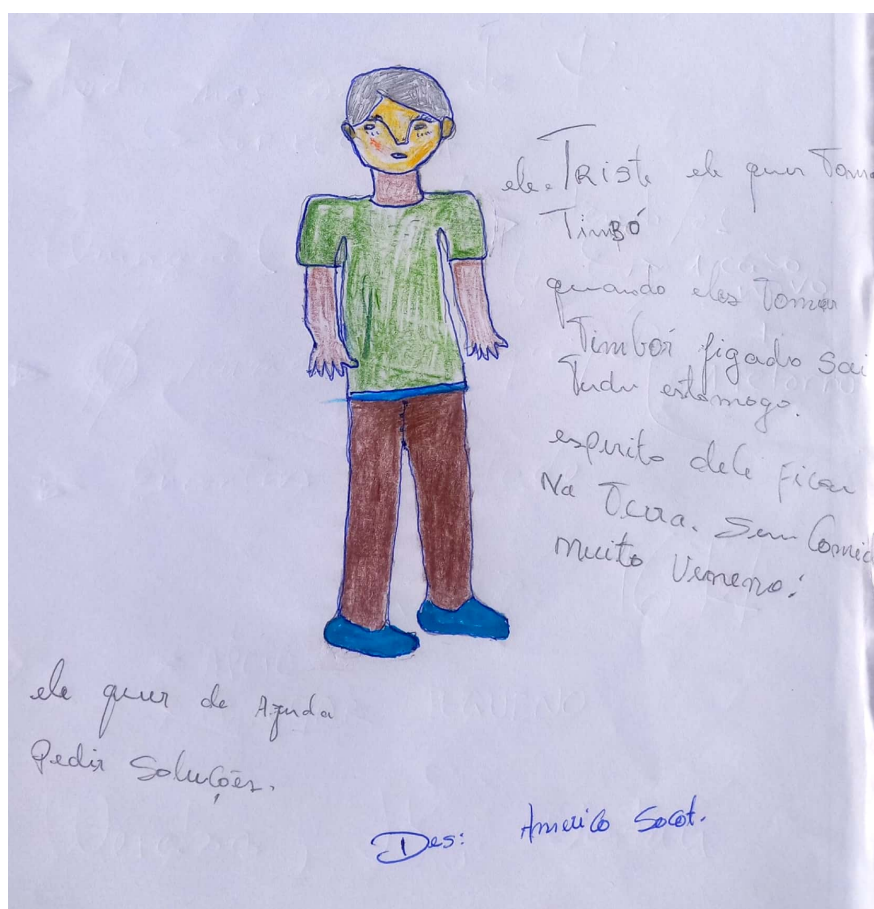 ele. Triste ele quer Toma
Timbó
quando eles Tomar
Timboí figado Sai
Tudu estomogo.
espirito dele ficar
Na Terra. Sem Comid
muito Veneno.
ele quer de Ajuda
Pedir Soluções.
Des: Americo Socot.